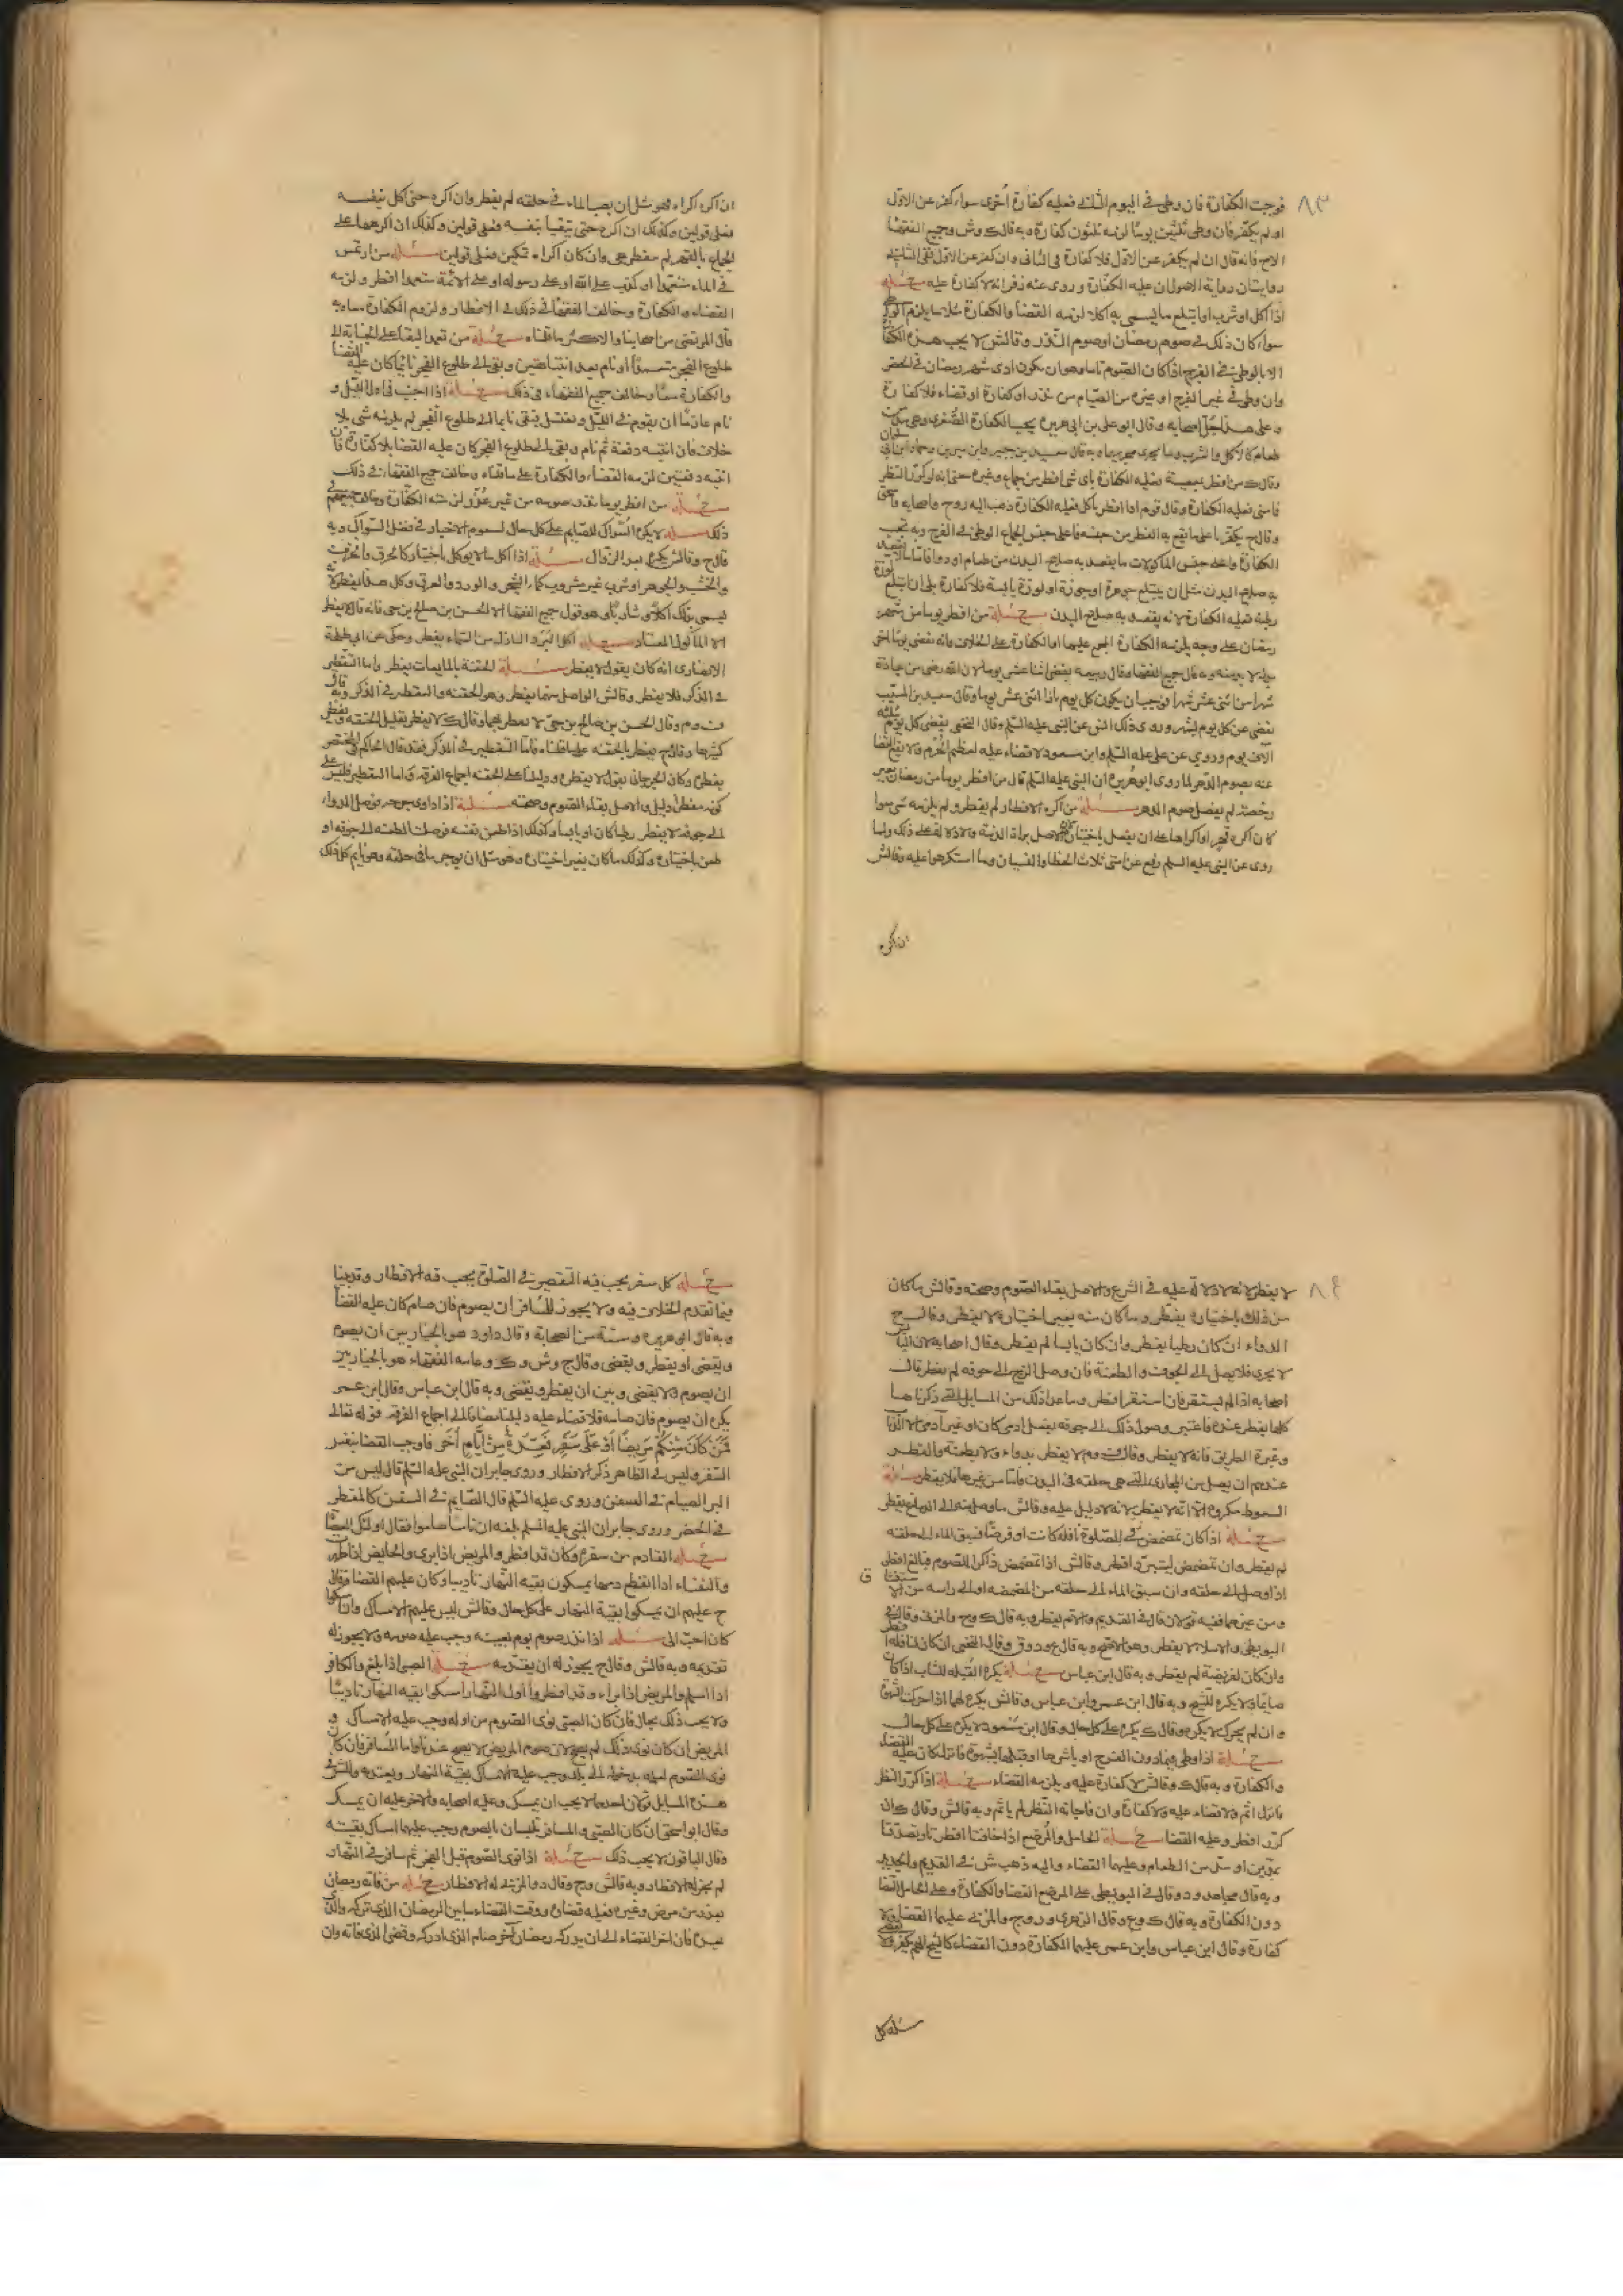 ٨٣
فوجبت الكفارة فان وطى فى اليوم الثانى فعليه كفارة اخرى سواء كفر عن الاول
او لم يكفر فان وطى ثلثين يوما لزمه ثلثون كفارة وبه قال ك وش وجميع الفقهاء
الا ح فانه قال ان لم يكفر عن الاول فلا كفارة فى الثانى وان كفر عن الاول ففى الثانية
روايتان رواية الاصول ان عليه الكفارة وروى عنه زفر انه لا كفارة عليه مسئلة
اذا اكل او شرب او ابتلع ما يسمى به اكلا لزمه القضا والكفارة مثل ما يلزم
سواء كان ذلك فى صوم رمضان او صوم النذر وقال ش لا يجب هذه الكفا
الا بالوطى فى الفرج اذا كان الصوم تاما وهو ان يكون ادى شهر رمضان فى الحضر
وان وطى فى غير الفرج او غيره من الصيام من نذر او كفارة او قضاء فلا كفارة
وعلى هذا جل اصحابه وقال ابو على بن ابى هريرة يجب الكفارة الصغرى وهى مد من
طعام كالاكل والشرب وما يجرى مجراهما وبه قال سعيد بن جبير وابن سيرين وحماد بن ابى
وقال ك من افطر بمعصية فعليه الكفارة باى شى افطر من جماع وغيره حتى انه لو كرر النظر
فامنى فعليه الكفارة وقال قوم اذا افطر باكل فعليه الكفارة ذهب اليه ر وح واصحابه
وقال ح يكفر باعلى ما يقع به الفطر من جنسه فاعلى جنس الجماع الوطى فى الفرج وبه تجب
الكفارة واعلى جنس الماكولات ما يقصد به صلاح البدن من طعام او دوا فاما ما لا يقصد
به صلاح البدن مثل ان يبتلع جوهرة او جوزة او لوزة يابسة فلا كفارة بلى ان ابتلع لوزة
رطبة فعليه الكفارة لانه يقصد به صلاح البدن مسئلة من افطر يوما من شهر
رمضان على وجه يلزمه الكفارة المجمع عليها او الكفارة على الخلاف فانه يقضى يوما اخر
بدله لا بد منه وبه قال جميع الفقهاء وقال ربيعه يقضى اثنا عشر يوما لان الله رضى من عباده
شهرا من اثنى عشر شهرا فوجب ان يكون كل يوم بازاء اثنى عشر يوما وقال سعيد بن المسيب
يقضى عن كل يوم بشهر وروى ذلك انس عن النبى عليه السلم وقال النخعى يقضى كل يوم بثلثة
الاف يوم وروى عن على عليه السلم وابن مسعود لا قضاء عليه لعظم الجرم ولا يقع القضا
عنه بصوم الدهر لما روى ابو هريرة ان النبى عليه السلم قال من افطر يوما من رمضان بغير
رخصة لم يقضه صوم الدهر مسئلة من اكره الافطار لم يفطر ولم يلزمه شى سوا
كان اكره قهر او اكراها على ان يفعل باختياره الاصل براة الذمة ولا دلالة على ذلك ولما
روى عن النبى عليه السلم رفع عن امتى ثلاث الخطا والنسيان وما استكرهوا عليه وقال ش
ان اكره
ان اكره اكراه فهو مثل ان يصب الماء فى حلقه لم يفطر وان اكره حتى اكل بنفسه
فعلى قولين وكذلك ان اكره حتى تتقيا بنفسه فعلى قولين وكذلك ان اكرهها على
الجماع بالقهر لم تفطر هى وان كان اكراه تمكين فعلى قولين مسئلة من ارتمس
فى الماء متعمدا او كذب على الله او على رسوله او على الائمة متعمدا افطر ولزمه
القضاء والكفارة وخالف الفقهاء فى ذلك فى الافطار ولزوم الكفارة معا وبه
قال المرتضى من اصحابنا والاكثر ما قلناه مسئلة من تعمد البقا على الجنابة الى
طلوع الفجر متعمدا او نام بعد انتباهتين وبقى الى طلوع الفجر نائما كان عليه القضا
والكفارة معا وخالف جميع الفقهاء فى ذلك مسئلة اذا اجنب فى اول الليل و
نام عازما ان يقوم فى الليل ويغتسل فبقى نايما الى طلوع الفجر لم يلزمه شى بلا
خلاف فان انتبه دفعة ثم نام وبقى الى طلوع الفجر كان عليه القضا بلا كفارة فان
انتبه دفعتين لزمه القضاء والكفارة على ما قلناه وخالف جميع الفقهاء فى ذلك
مسئلة من افطر يوما نذر صومه من غير عذر لزمته الكفارة وخالف جميعهم فى
ذلك مسئلة لا يكره السواك للصايم على كل حال لعموم الاخبار فى فضل السواك وبه
قال ح وقال ش يكره بعد الزوال مسئلة اذا اكل ما لا يوكل باختياره كالخرق والخزف
والخشب والجوهر او شرب غير مشروب كماء الشجر والورد والعرق وكل هذا يفطر لانه
يسمى بذلك اكلا وشاربا وهو قول جميع الفقها الا الحسن بن صالح بن حى فانه قال لا يفطر
الا الماكول المعتاد مسئلة اكل البرد النازل من السماء يفطر وحكى عن ابى طلحة
الانصارى انه كان يقول لا يفطر مسئلة الحقنة بالمايعات يفطر واما التقطير
فى الذكر فلا يفطر وقال ش الواصل منهما يفطر وهو الحقنه والتقطير فى الذكر وبه قال
ف وم وقال الحسن بن صالح بن حى لا يفطر بهما وقال ك لا يفطر بقليل الحقنه ويفطر
كثيرها وقال ح يفطر بالحقنه على ما قلناه فاما التقطير فى الذكر فقد قال الحاكم فى المختصر
يفطر وكان الجرجانى يقول لا يفطره ودليلنا على الحقنه اجماع الفرقه واما التقطير فليس على
كونه مفطرا دليل والاصل بقاء الصوم وصحته مسئلة اذا داوى جرحه فوصل الدواء
الى جوفه لا يفطر رطبا كان او يابسا وكذلك اذا طعن نفسه فوصلت الطعنه الى جوفه او
طعن باختياره وكذلك ما كان بغير اختياره وهو مثل ان يوجر ما فى حلقه وهو نايم كل ذلك
٨٤
لا يفطر لانه لا دلالة عليه فى الشرع والاصل بقاء الصوم وصحته وقال ش ما كان
من ذلك باختياره يفطر وما كان منه بغير اختياره لا يفطر وقال ح
الدواء ان كان رطبا يفطر وان كان يابسا لم يفطر وقال اصحابه لان اليابس
لا يجرى فلا يصل الى الجوف والطعنة فان وصل الزج الى جوفه لم يفطر قال
اصحابه اذا لم يستقر فان استقر افطر وما عدا ذلك من المسايل التى ذكرناها
كلها يفطر عنده فاعتبر وصول ذلك الى جوفه بفعل ادمى كان او غير آدمى الا الذباب
وغبرة الطريق فانه لا يفطر وقال ف وم لا يفطر بدواء ولا بطعنة والفطر
عندهم ان يصل من المجارى التى هى خلقه فى البدن فاما من غيرها فلا يفطر مسئلة
السعوط مكروه الا انه لا يفطر لانه لا دليل عليه وقال ش ما وصل منه الى الدماغ يفطر
مسئلة اذا كان تمضمض فى الصلوة نافلة كانت او فرضا فسبق الماء الى حلقه
لم يفطر وان تمضمض للتبرد افطر وقال ش اذا تمضمض ذاكرا للصوم فبالغ افطر
اذا وصل الى حلقه وان سبق الماء الى حلقه من المضمضه او الى راسه من الاستنشاق
ومن غير مبالغة فيه قولان قال فى القديم والام يفطر وبه قال ك وح والمزنى وقال فى
البويطى والاملاء لا يفطر وهو الاصح وبه قال ع ود وق وقال النخعى ان كان لنافلة افطر
وان كان لفريضة لم يفطر وبه قال ابن عباس مسئلة يكره القبله للشاب اذا كان
صايما ولا يكره للشيخ وبه قال ابن عمر وابن عباس وقال ش يكره لها اذا حركت الشهوة
وان لم يحرك لا يكره وقال ك يكره على كل حال وقال ابن مسعود لا يكره على كل حال
مسئلة اذا وطى فيما دون الفرج او باشرها او قبلها بشهوة فانزل كان عليه القضاء
والكفارة وبه قال ك وقال ش لا كفارة عليه ويلزمه القضاء مسئلة اذا كرر النظر
فانزل اثم ولا قضاء عليه ولا كفارة وان فاجاته النظر لم ياثم وبه قال ش وقال ك ان
كرر افطر وعليه القضا مسئلة الحامل والمرضع اذا خافتا افطرتا وتصدقتا
بمدين او بمد من الطعام وعليهما القضاء واليه ذهب ش فى القديم والجديد
وبه قال مجاهد و د وقال فى البويطى على المرضع القضا والكفارة وعلى الحامل القضا
دون الكفارة وبه قال ك وع وقال الزهرى ور وح والمزنى عليهما القضا ولا
كفارة وقال ابن عباس وابن عمر عليهما الكفارة دون القضاء كالشيخ الهم
مسئلة كل
مسئلة كل سفر يجب فيه التقصير فى الصلوة يجب فيه الافطار وقد بينا
فيما تقدم الخلاف فيه ولا يجوز للمسافر ان يصوم فان صام كان عليه القضا
وبه قال ابو هريرة وستة من الصحابة وقال داود هو بالخيار بين ان يصوم
ويقضى او يفطر ويقضى وقال ح وش وك وعامة الفقهاء هو بالخيار بين
ان يصوم ولا يقضى وبين ان يفطر ويقضى وبه قال ابن عباس وقال ابن عمر
يكره ان يصوم فان صامه فلا قضاء عليه دليلنا مضافا الى اجماع الفرقه قوله تعالى
فَمَنْ كَانَ مِنْكُمْ مَرِيضًا أَوْ عَلَى سَفَرٍ فَعِدَّةٌ مِنْ أَيَّامٍ أُخَرَ فاوجب القضا بنفس
السفر وليس فى الظاهر ذكر الافطار وروى جابر ان النبى عليه السلم قال ليس من
البر الصيام فى السفر وروى عليه السلم قال الصايم فى السفر كالمفطر
فى الحضر وروى جابر ان النبى عليه السلم بلغه ان ناسا صاموا فقال اولئك العصاة
مسئلة القادم من سفره وكان قد افطر والمريض اذا برى والحايض اذا طهرت
والنفساء اذا انقطع دمها يمسكون بقية النهار تاديبا وكان عليهم القضا وقال
ح عليهم ان يمسكوا بقية النهار على كل حال وقال ش ليس عليهم الامساك وان امسكوا
كان احب الى مسئلة اذا نذر صوم يوم بعينه وجب عليه صومه ولا يجوز له
تقديمه وبه قال ش وقال ح يجوز له ان يقدمه مسئلة الصبى اذا بلغ والكافر
اذا اسلم والمريض اذا براء وقد افطروا اول النهار امسكوا بقية النهار تاديبا
ولا يجب ذلك بحال فان كان الصبى نوى الصوم من اوله وجب عليه الامساك و
المريض ان كان نوى ذلك لم يصح لان صوم المريض لا يصح عندنا واما المسافر فان كان
نوى الصوم لعلمه بدخوله الى بلده وجب عليه الامساك بقية النهار ويعتد به وللش فى
هذه المسايل قولان احدهما لا يجب ان يمسك وعليه اصحابه والاخر عليه ان يمسك
وقال ابو اسحق ان كان الصبى والمسافر تلبسا بالصوم وجب عليهما امساك بقيته
وقال الباقون لا يجب ذلك مسئلة اذا نوى الصوم قبل الفجر ثم سافر فى النهار
لم يجز له الافطار وبه قال ش وح وقال د والمزنى له الافطار مسئلة من فاته رمضان
بعذر من مرض وغيره فعليه قضاؤه ووقت القضاء ما بين الرمضان الذى تركه والذى
بعده فان اخر القضاء الى ان يدركه رمضان آخر صام الذى ادركه وقضى الذى فاته وان